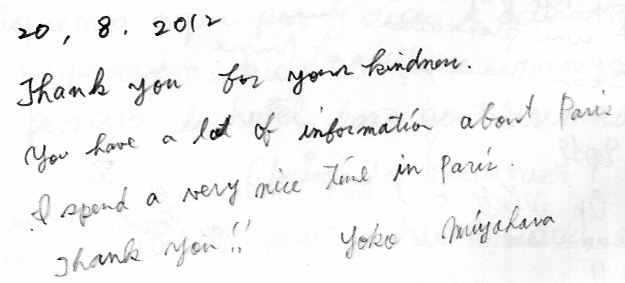 20, 8. 2012
Thank you for your kindness.
You have a lot of information about Paris
I spend a very nice time in Paris.
Thank you!! Yoko Miyahara